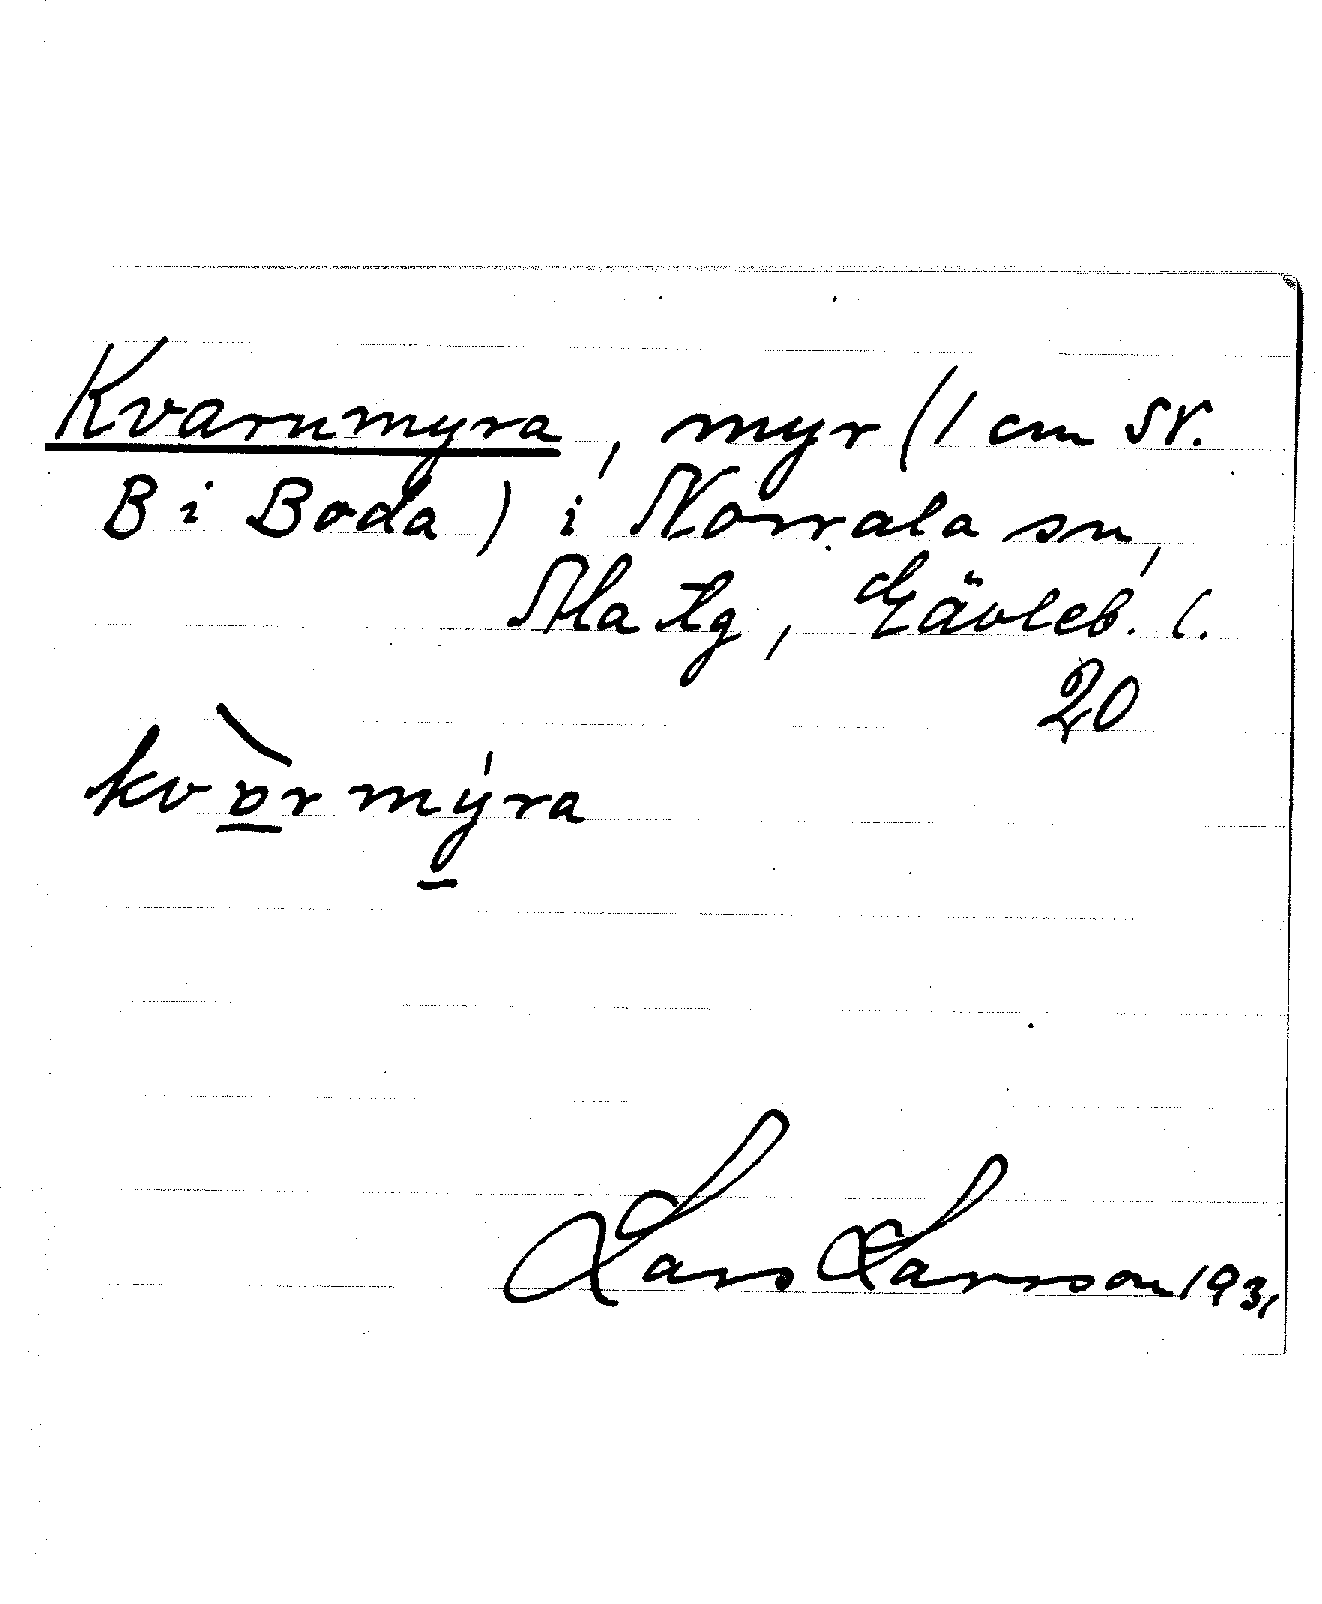 Kvarnmyra, myr (1 cm SV.
B i Boda) i Norrala sn,
Ala tg, Gävleb. l.
20
kvò̲rmý̲ra
Lars Larsson 1931